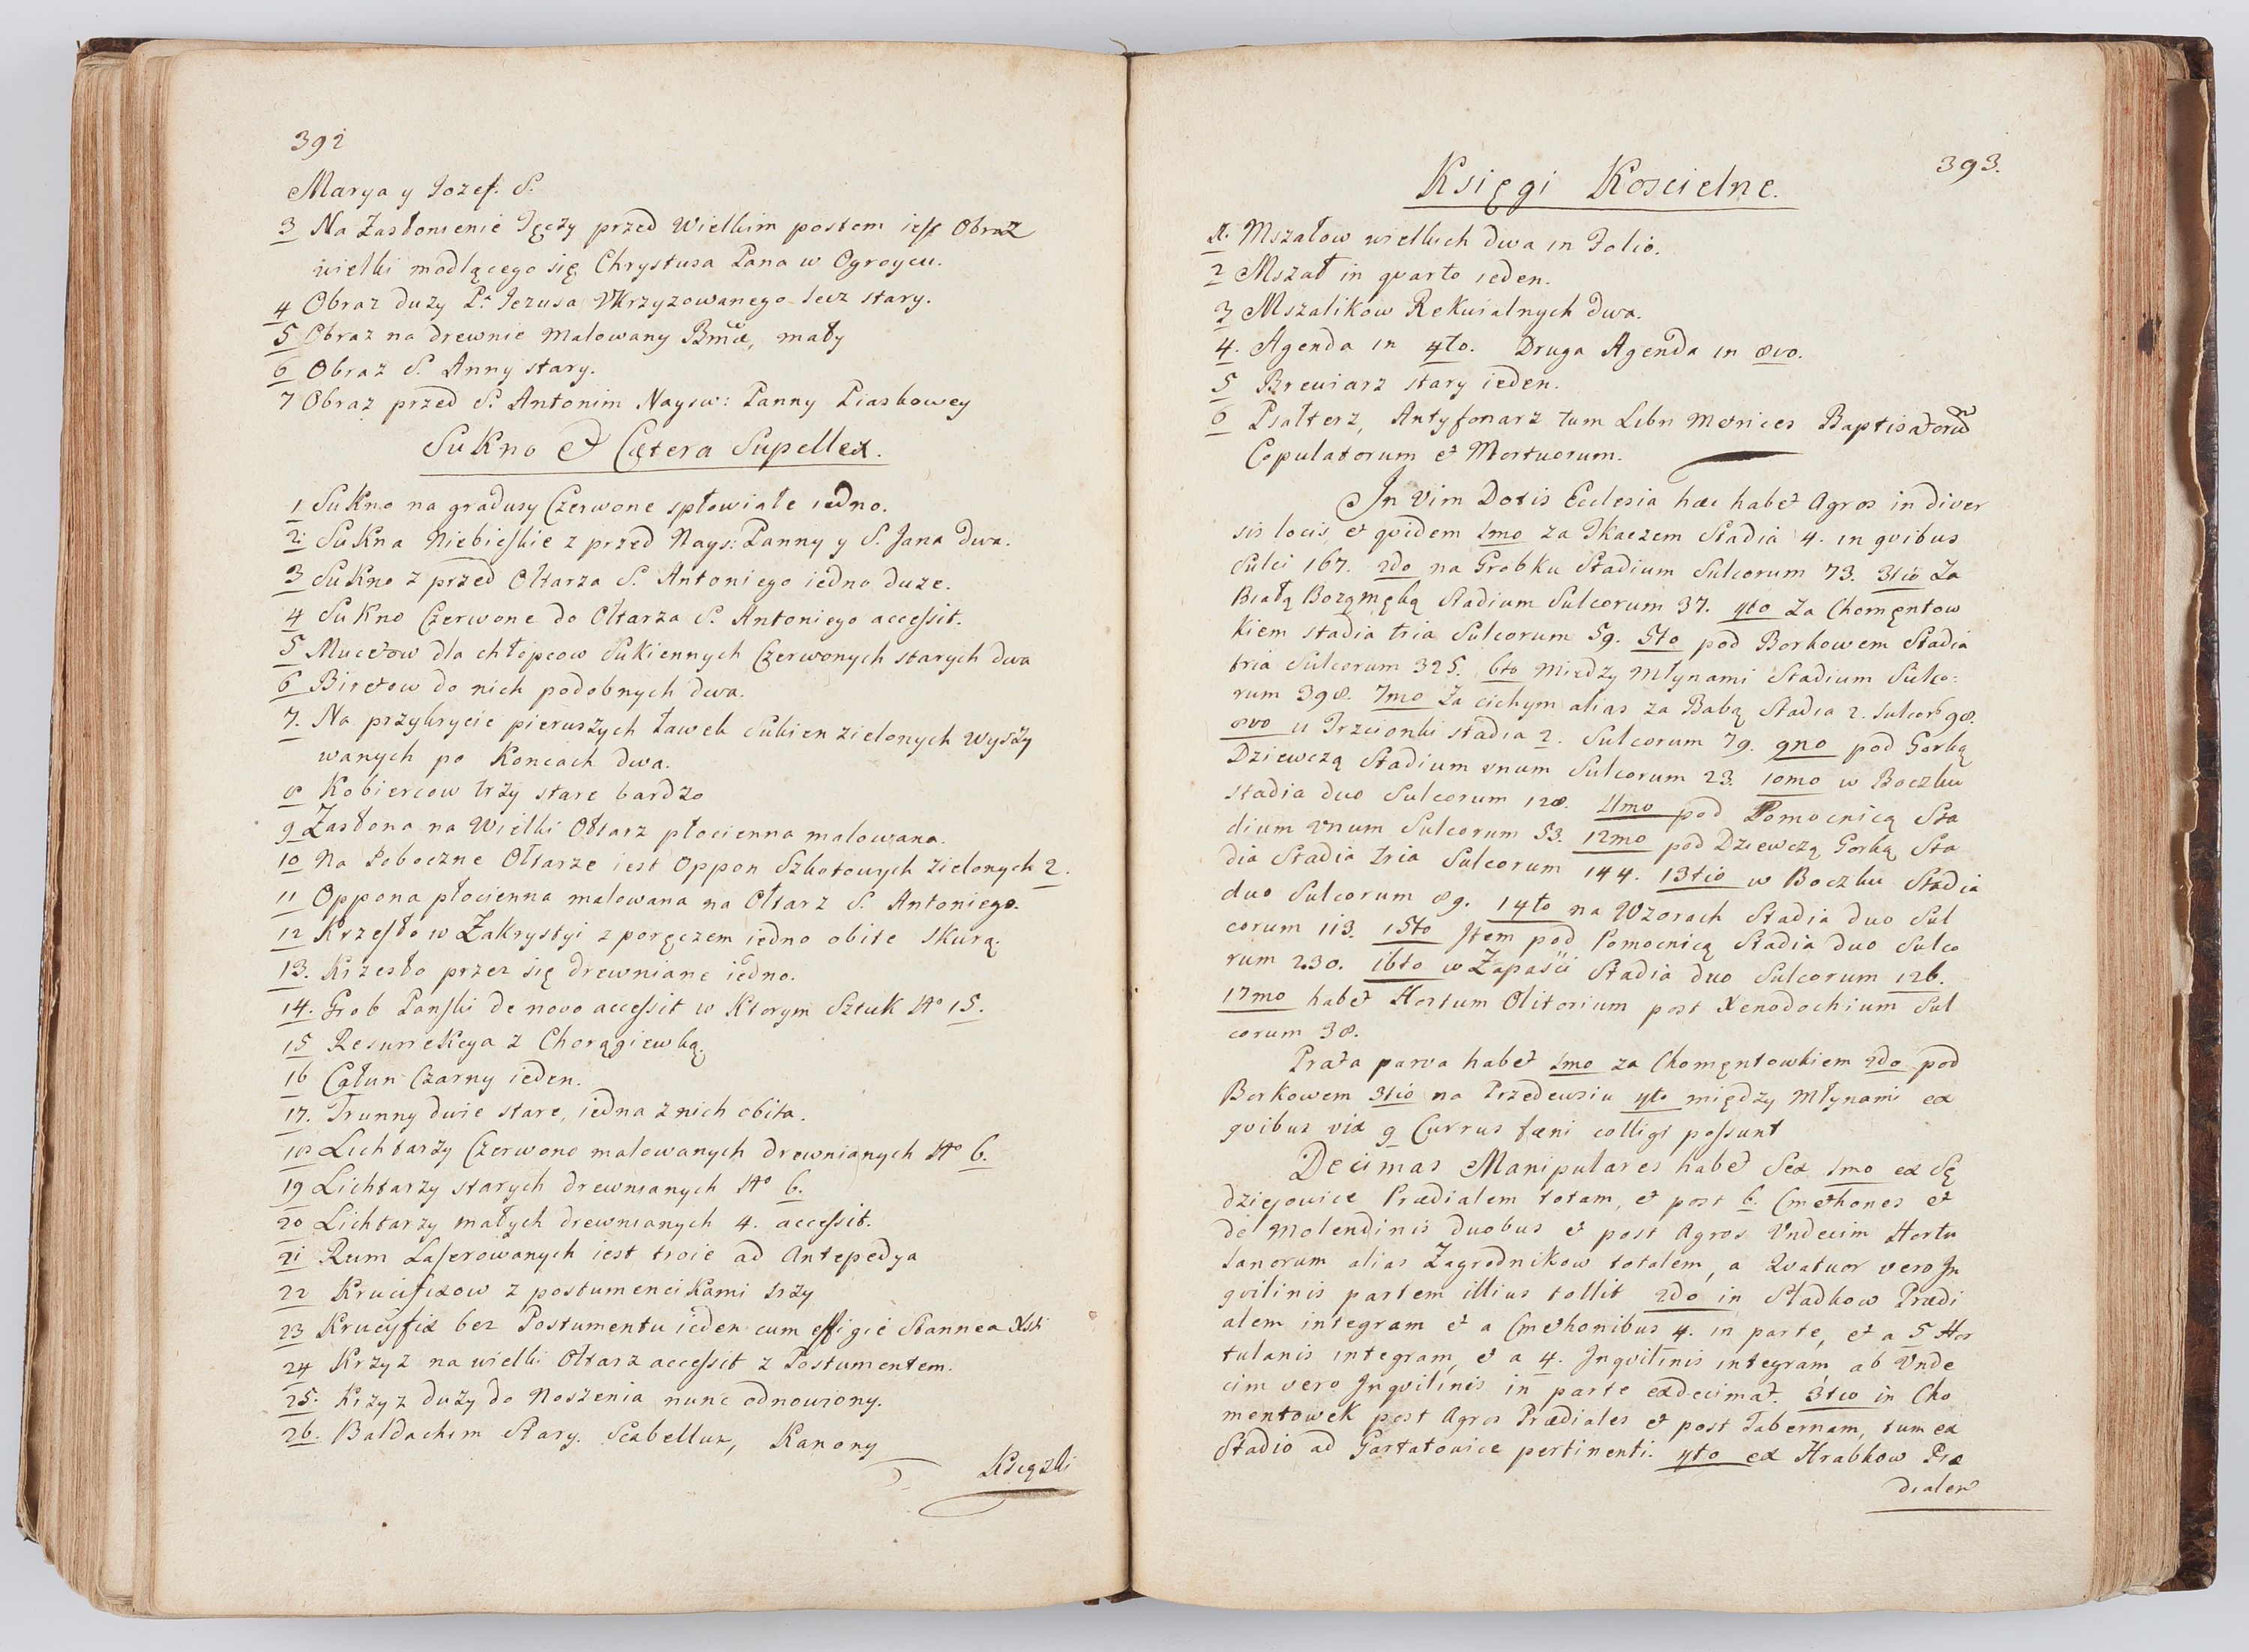 392
Marya y Jozef. S.
3 Na Zasłonienie Tęczy przed Wielkim postem iest Obraz
wielki modlącego się Chrystusa Pana w Ogroycu.
4 Obraz duzy Pa Jezusa Vkrzyzowanego lecz stary.
5 Obraz na drewnie Malowany Bmæ, mały
6 Obraz S. Anny stary.
7 Obraz przed S. Antonim Naysw: Panny Piaskowey
Sukno & Cætera Supellex.
1 Sukno na gradusy Czerwone spłowiałe iedno.
2. Sukna Niebieskie z przed Nays: Panny y S. Jana dwa.
3 Sukno z przed Ołtarza S. Antoniego iedno duze.
4 Sukno Czerwone do Ołtarza S. Antoniego accessit.
5 Mucetow dla chłopcow Sukiennych Czerwonych starych dwa
6 Biretow do nich podobnych dwa.
7. Na przykrycie pierwszych ławek Sukien zielonych Wyszy
wanych po Koncach dwa.
8 Kobiercow trzy stare bardzo
9 Zasłona na Wielki Ołtarz płocienna malowana.
10 Na Poboczne Ołtarze iest Oppon Szkotowych zielonych 2.
11 Oppona płocienna malowana na Ołtarz S. Antoniego.
12 Krzesło w Zakrystyi z poręczem iedno obite Skurą.
13. Krzesło przez się drewniane iedno.
14. Grob Panski de novo accessit w Ktorym Sztuk No 15.
15 Resurrekcya z Chorągiewką.
16 Całun Czarny ieden.
17. Trunny dwie stare, iedna z nich obita.
18 Lichtarzy Czerwono malowanych drewnianych No 6.
19 Lichtarzy starych drewnianych No 6.
20 Lichtarzy małych drewnianych 4. accessit.
21 Ram Laserowanych iest troie ad Antepedya
22 Krucifixow z postumencikami trzy
23 Krucyfix bez Postumentu ieden cum effigie Stannea Xsti
24 Krzyz na wielki Ołtarz accessit z Postumentem.
25. Krzyz duzy do Noszenia nunc odnowiony.
26. Baldachim Stary. Scabellum, Kanony
Ksiązki
393.
Księgi Koscielne.
1. Mszałow wielkich dwa in Folio.
2 Mszał in qvarto ieden.
3 Mszalikow Rekwialnych dwa.
4. Agenda in 4to. Druga Agenda in 8vo.
5 Brewiarz stary ieden.
6 Psałterz, Antyfonarz tum Libri Metrices Baptisatorum
Copulatorum et Mortuorum.
In Vim Dotis Ecclesia hæc habet Agros in diver
sis locis, et qvidem 1mo za Tkaczem Stadia 4. in qvibus
Sulci 167. 2do na Grobku Stadium Sulcorum 73. 3tio Za
Białą Bozą męką Stadium Sulcorum 37. 4to Za Chomęntow
kiem stadia tria Sulcorum 59. 5to pod Borkowem Stadia
tria Sulcorum 325. 6to Miedzy Młynami Stadium Sulco:
rum 398. 7mo Za cichym alias za Babą Stadia 2. Sulcor 98.
8vo u Trzcionki stadia 2. Sulcorum 79. 9no pod Gorką
Dziewczą Stadium vnum Sulcorum 23. 10mo w Boczku
stadia duo Sulcorum 128. 11mo pod Pomocnicą Sta
dium vnum Sulcorum 53. 12mo pod Dziewczą Gorką Sta
dia Stadia tria Sulcorum 144. 13tio w Boczku Stadia
duo Sulcorum 89. 14to na Wzorach Stadia duo Sul
corum 113. 15to Item pod Pomocnicą Stadia duo Sulco
rum 230. 16to w Zapaści Stadia duo Sulcorum 126.
17mo habet Hortum Olitorium post Xenodochium Sul
corum 38.
Prata parva habet 1mo za Chomęntowkiem 2do pod
Borkowem 3tio na Przedewsiu 4to między Młynami ex
qvibus vix 9 Currus fæni colligi possunt
Decimas Manipulares habet Sex 1mo ex Sę
dziejowice Prædialem totam, et post 6. Cmethones et
de Molendinis duobus et post Agros Vndecim Hortu
lanorum alias Zagrodnikow totalem, a Qvatuor vero In
qvilinis partem illius tollit 2do in Sładkow Prædi
alem integram et a Cmethonibus 4. in parte, et a 5 Hor
tulanis integram, et a 4. Inqvilinis integram, ab Vnde
cim vero Inqvilinis in parte exdecimat. 3tio in Cho
mentowek post Agros Prædiales et post Tabernam, tum ex
Stadio ad Gartatowice pertinenti. 4to ex Hrabkow Præ
dialem